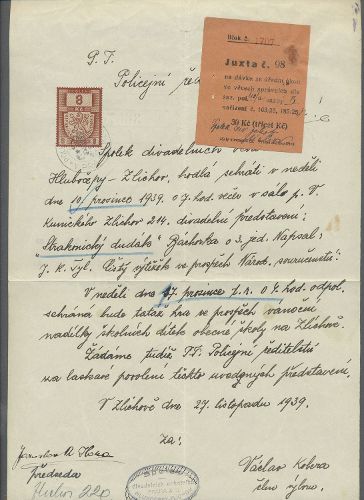 P. T.
Policejní
8
Kč
Blok č. 7707
Juxta č. 98
na dávku za úřední úkon
ve věcech správních dle
30 Kč (třicet Kč)
Spolek divadelních
Hlubočepy-Zlíchov, hodlá sehráti v neděli
dne 10/prosince 1939. o 7. hod. več. v sále p. V.
Kunického Zlíchov 214. divadelní představení:
"Strakonický dudák" Báchorka o 3. jed. Napsal:
J. K. Tyl. Čistý výtěžek ve prospěch Národ. souručenství.
V neděli dne 17. prosince t. r. o 4. hod. odpol.
sehrána bude tatáž hra ve prospěch vánoční
nadílky školních dítek obecné školy na Zlíchově.
Žádáme tudíž P.T. Policejní ředitelství
za laskavé povolení těchto uvedených představení.
V Zlíchově dne 27. listopadu 1939.
za:
Jaroslav
Předseda
220
Václav Kobera
člen výboru